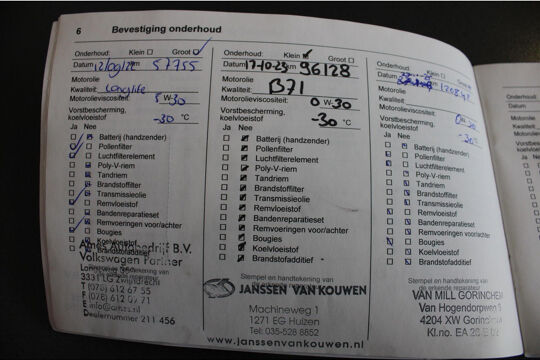 6 Bevestiging onderhoud
Onderhoud: Klein Groot
Datum km 57755
Motorolie
Kwaliteit: Longlife
Motorolieviscositeit: 5 W-30
Vorstbescherming,
koelvloeistof -30 °C
Ja Nee
Batterij (handzender)
Pollenfilter
Luchtfilterelement
Poly-V-riem
Tandriem
Brandstoffilter
Transmissieolie
Remvloeistof
Bandenreparatieset
Remvoeringen voor/achter
Bougies
Koelvloeistof
Brandstofadditief
Ames Autobedrijf B.V.
Volkswagen Partner
3331 LG Zwijndrecht
T (078) 612 67 55
Dealernummer 211 456
Onderhoud: Klein Groot
Datum 17-10-23 km 96128
Motorolie
Kwaliteit: B71
Motorolieviscositeit: 0 W-30
Vorstbescherming,
koelvloeistof -30 °C
Ja Nee
Batterij (handzender)
Pollenfilter
Luchtfilterelement
Poly-V-riem
Tandriem
Brandstoffilter
Transmissieolie
Remvloeistof
Bandenreparatieset
Remvoeringen voor/achter
Bougies
Koelvloeistof
Brandstofadditief
Stempel en handtekening van
de erkende reparateur
JANSSEN VAN KOUWEN
Machineweg 1
1271 EG Huizen
Tel: 035-528 8852
www.janssenvankouwen.nl
Onderhoud: Klein Groot
Datum
Motorolie
Kwaliteit:
Motorolieviscositeit:
Vorstbescherming,
koelvloeistof
Ja Nee
Batterij (handzender)
Pollenfilter
Luchtfilterelement
Poly-V-riem
Tandriem
Brandstoffilter
Transmissieolie
Remvloeistof
Bandenreparatieset
Remvoeringen voor/achter
Bougies
Koelvloeistof
Brandstofadditief
Stempel en handtekening van
de erkende reparateur
VAN MILL GORINCHEM
Van Hogendorpweg
4204 XW Gorinchem
Kl.no. EA
Onderhoud:
Datum
Motorolie
Kwaliteit:
Ja